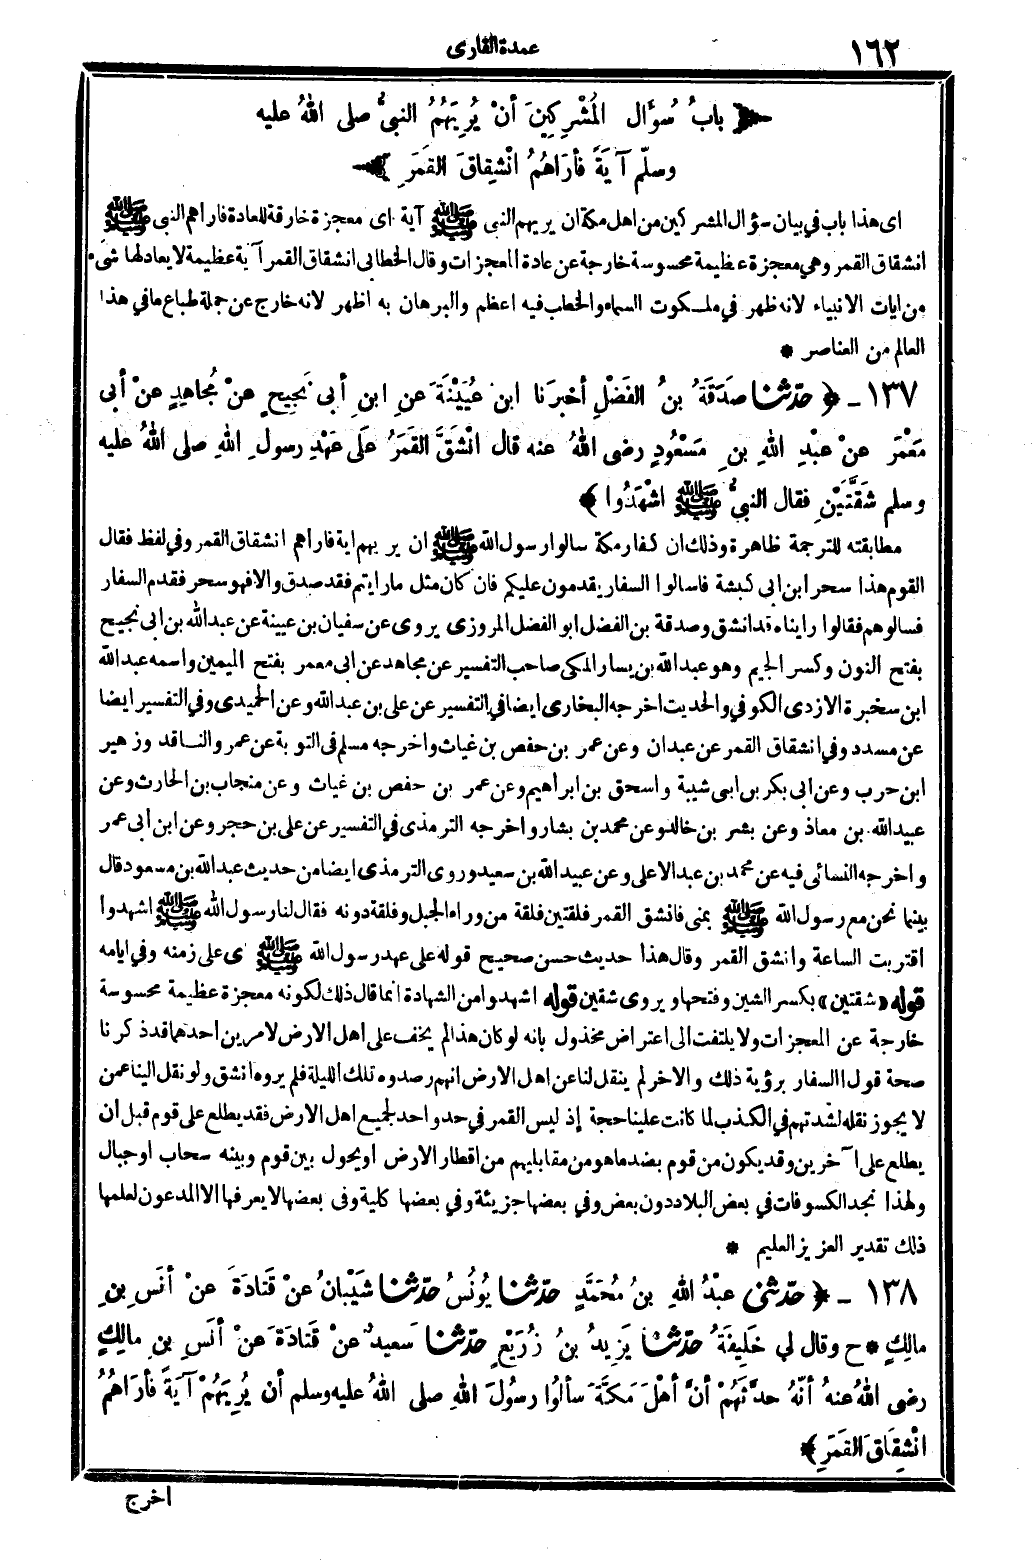 ١٦٢
عمدة القارى
﴿ بابُ سُؤَال المُشْرِكِينَ أنْ يُرِيَهُمُ النبيُّ صلى اللهُ عليه
وسلّم آيَةً فأرَاهُمُ انْشِقاقَ القَمَرِ ﴾
اى هذا باب في بيان سؤال المشركين من اهل مكة ان يريهم النبى ﷺ آية اى معجزة خارقة للعادة فاراهم النبى ﷺ
انشقاق القمر وهي معجزة عظيمة محسوسة خارجة عن عادة المعجزات وقال الخطابى انشقاق القمر آية عظيمة لا يعادلها شىء
من ايات الانبياء لانه ظهر في ملكوت السماء والخطاب فيه اعظم والبرهان به اظهر لانه خارج عن جملة طباع مافي هذا
العالم من العناصر *
١٣٧ ـ ﴿ حدّثنا صَدَقَةُ بنُ الفَضْلِ أخبرَنا ابن عُيَيْنَةَ عنِ ابنِ أبى نَجِيحٍ عنْ مُجاهِدٍ عنْ أبى
مَعْمَرٍ عنْ عبْدِ اللهِ بنِ مَسْعُودٍ رضى اللهُ عنه قال انْشَقَّ القَمَرُ علَى عَهْدِ رسولِ اللهِ صلى اللهُ عليه
وسلم شَقَّتَيْنِ فقال النبيُّ ﷺ اشْهَدُوا ﴾
مطابقته للترجمة ظاهرة وذلك ان كفار مكة سالوا رسول الله ﷺ ان يريهم اية فاراهم انشقاق القمر وفي لفظ فقال
القوم هذا سحر ابن ابى كبشة فاسالوا السفار يقدمون عليكم فان كان مثل ما رايتم فقد صدق والا فهو سحر فقدم السفار
فسالوهم فقالوا رايناه قد انشق وصدقة بن الفضل ابو الفضل المروزى يروى عن سفيان بن عيينة عن عبد الله بن ابى نجيح
بفتح النون وكسر الجيم وهو عبد الله بن يسار المكى صاحب التفسير عن مجاهد عن ابى معمر بفتح الميمين واسمه عبد الله
ابن سخبرة الازدى الكوفي والحديث اخرجه البخارى ايضا في التفسير عن على بن عبد الله وعن الحميدى وفي التفسير ايضا
عن مسدد وفي انشقاق القمر عن عبدان وعن عمر بن حفص بن غياث واخرجه مسلم فى التوبة عن عمرو الناقد وزهير
ابن حرب وعن ابى بكر بن ابى شيبة واسحق بن ابراهيم وعن عمر بن حفص بن غياث وعن منجاب بن الحارث وعن
عبيد الله بن معاذ وعن بشر بن خالد وعن محمد بن بشار واخرجه الترمذى في التفسير عن على بن حجر وعن ابن أبى عمر
واخرجه النسائى فيه عن محمد بن عبد الاعلى وعن عبيد الله بن سعيد وروى الترمذى ايضا من حديث عبد الله بن مسعود قال
بينما نحن مع رسول الله ﷺ بمنى فانشق القمر فلقتين فلقة من وراء الجبل وفلقة دونه فقال لنا رسول الله ﷺ اشهدوا
اقتربت الساعة وانشق القمر وقال هذا حديث حسن صحيح قوله على عهد رسول الله ﷺ ى على زمنه وفي ايامه
قوله «شقتين» بكسر الشين وفتحها ويروى شقين قوله اشهدوا من الشهادة انما قال ذلك لكونه معجزة عظيمة محسوسة
خارجة عن المعجزات ولا يلتفت الى اعتراض مخذول بانه لو كان هذا لم يخف على اهل الارض لامرين احدهما قد ذكرنا
صحة قول االسفار برؤية ذلك والاخر لم ينقل لنا عن اهل الارض انهم رصدوه تلك الليلة فلم يروه انشق ولو نقل الينا عمن
لا يجوز نقله لشدتهم في الكذب لما كانت علينا حجة إذ ليس القمر في حد واحد لجميع اهل الارض فقد يطلع على قوم قبل ان
يطلع على آخرين وقد يكون من قوم بضد ماهو من مقابليهم من اقطار الارض او يحول بين قوم وبينه سحاب او جبال
ولهذا نجد الكسوفات في بعض البلاد دون بعض وفي بعضها جزيئة وفي بعضها كلية وفى بعضها لا يعرفها الا المدعون لعلمها
ذلك تقدير العزيز العليم *
١٣٨ ـ ﴿ حدّثنى عبْدُ اللهِ بنُ مُحَمَّدٍ حدّثنا يُونُسُ حدّثنا شَيْبانُ عنْ قَتادَةَ عنْ أنَسِ بنِ
مالِكٍ * ح وقال لي خَلِيفَةُ حدّثنا يَزِيدُ بنُ زُرَيْعٍ حدّثنا سَعيدٌ عنْ قَتادَةَ عنْ أنَسِ بنِ مالِكٍ
رضى اللهُ عنهُ أنّهُ حدَّثَهُمْ أنَّ أهْلَ مَكَّةَ سألُوا رسُولَ اللهِ صلى اللهُ عليه وسلم أن يُرِيَهُمْ آيَةً فأرَاهُمُ
انْشِقَاقَ القَمَرِ ﴾
اخرج